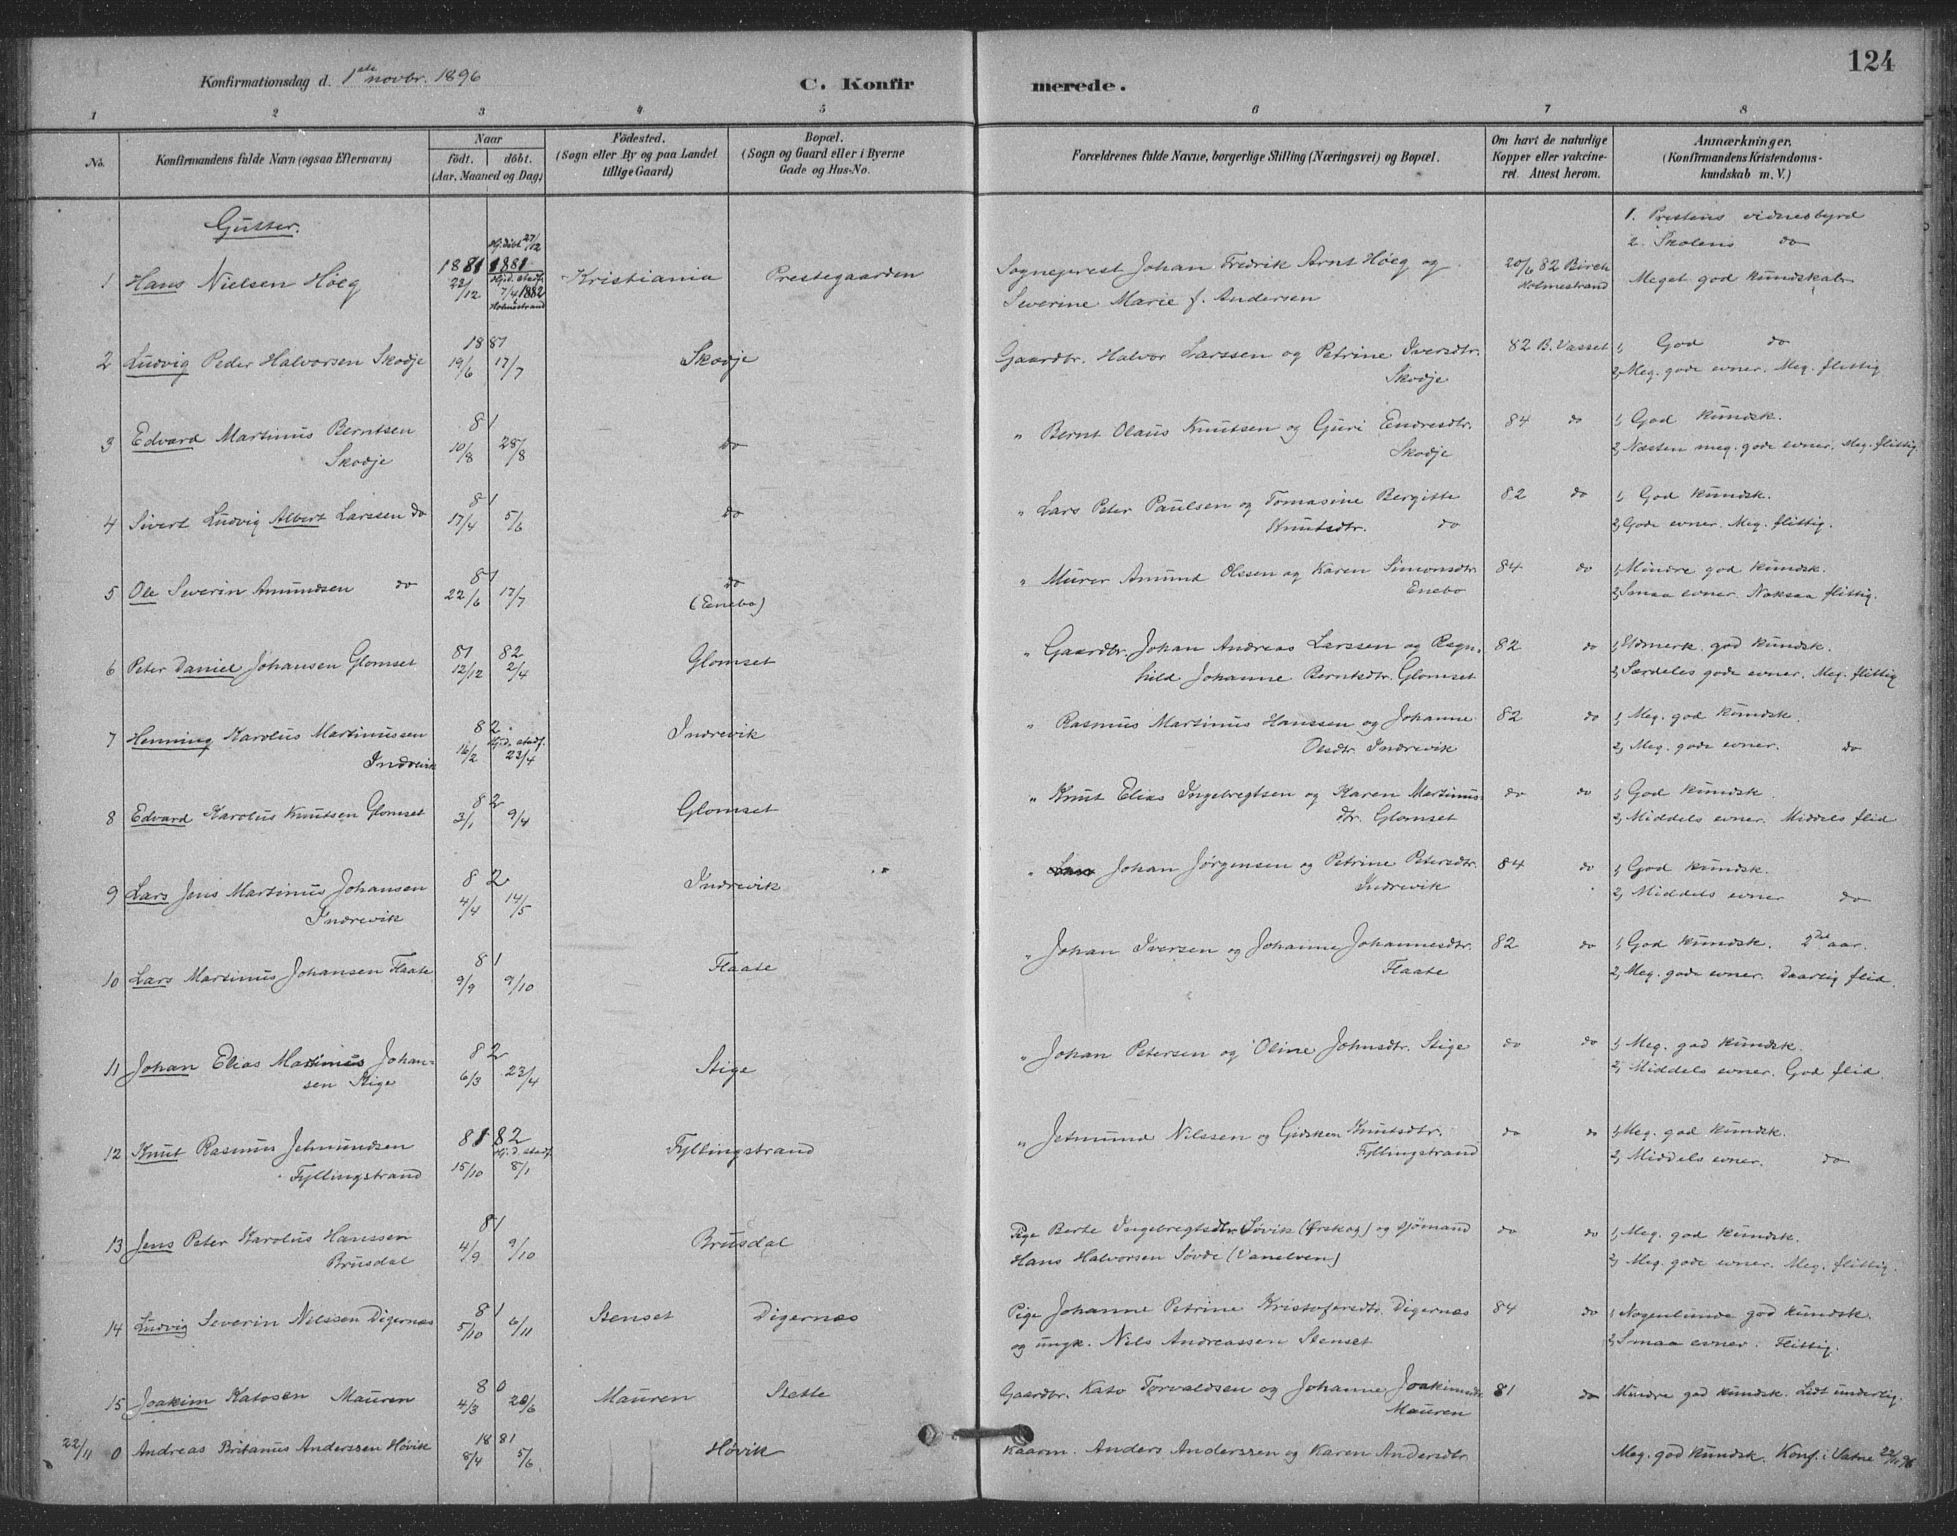 124
Konfirmationsdag d. 1ste novbr. 1896
C. Konfirmerede.
1 2 3 4 5 6 7 8
No. Konfirmandens fulde Navn (ogsaa Efternavn) Naar født. døbt. (Aar, Maaned og Dag) Fødested. (Sogn eller By og paa Landet tillige Gaard) Bopæl. (Sogn og Gaard eller i Byerne Gade og Hus-No. Forældrenes fulde Navne, borgerlige Stilling (Næringsvei) og Bopæl. Om havt de naturlige Kopper eller vakcineret. Attest herom. Anmærkninger. (Konfirmandens Kristendomskundskab m. V.)
Gutter.
1. Prestens vidnesbyrd
2. Skolens do
1 Hans Nielsen Høeg 1881 22/12 Hj. døbt 27/12 1881 Hjd. stadf. 7/4 1882 Holmestrand Kristiania Prestegaarden Sogneprest Johan Fredrik Arnt Høeg og
Severine Marie f. Andersen 20/6 82 Birch Holmestrand Meget god kundskab
2 Ludvig Peder Halvorsen Skodje 1881 19/6 17/7 Skodje Gaardbr. Halvor Larssen og Petrine Iversdtr.
Skodje 82 B. Vasset 1, God do
2, Meg. gode evner. Meg. flittig
3 Edvard Martinus Berntsen
Skodje 81 10/8 28/8 do " Bernt Olaus Knutsen og Guri Endresdtr.
Skodje 84 do 1, God kundsk.
2, Næsten meg. gode evner. Meg. flittig.
4 Sivert Ludvig Albert Larssen do 81 17/4 5/6 do " Lars Peter Paulsen og Tomasine Bergitte
Knutsdtr. do 82 do 1, God kundsk.
2, Gode evner. Meg. flittig.
5 Ole Severin Amundsen do 81 22/6 17/7 do
(Enebo) " Murer Amund Olssen og Karen Simonsdtr.
Enebo 84 do 1, Mindre god kundsk.
2, Smaa evner. Noksaa flittig.
6 Peter Daniel Johansen Glomset 81 12/12 82 2/4 Glomset " Gaardbr. Johan Andreas Larssen og Ragn-
hild Johanne Berntsdtr. Glomset 82 do 1, Udmerk. god kundsk.
2, Særdeles gode evner. Meg. flittig
7 Henning Karolus Martinussen
Indrevik 82 16/2 Hjd. stadf. 23/4 Indrevik " Rasmus Martinus Hanssen og Johanne
Olsdtr. Indrevik 82 do 1, Meg. god kundsk.
2, Meg. gode evner. do
8 Edvard Karolus Knutsen Glomset 82 3/1 9/4 Glomset " Knut Elias Ingebregtsen og Karen Martinus-
dtr. Glomset do do 1, God kundsk.
2, Middels evner. Middels flid
9 Lars Jens Martinus Johansen
Indrevik 82 4/4 14/5 Indrevik " Johan Jørgensen og Petrine Petersdtr.
Indrevik 84 do 1, God kundsk.
2, Middels evner do
10 Lars Martinus Johansen Flaate 81 9/9 9/10 Flaate " Johan Iversen og Johanne Johannesdtr.
Flaate 82 do 1, God kundsk. 2det aar.
2, Meg. gode evner. Daarlig flid.
11 Johan Elias Martinus Johan-
sen Stige 82 6/3 23/4 Stige " Johan Petersen og Oline Johnsdtr. Stige do do 1, Meg. god kundsk.
2, Middels evner. God flid.
12 Knut Rasmus Jetmundsen
Fyllingstrand 81 15/10 82 Hjd. stadf. 8/1 Fyllingstrand " Jetmund Nilssen og Gidsken Knutsdtr.
Fyllingstrand do do 1, Meg. god kundsk.
2, Middels evner. do
13 Jens Peter Karolus Hanssen
Brusdal 81 4/9 9/10 Brusdal Pige Berte Ingebregtsdtr. Søvik (Ørskog) og sjømand
Hans Halvorsen Søvde (Vanelven) do do 1, Meg. god kundsk.
2, Meg. gode evner. Meg. flittig.
14 Ludvig Severin Nilssen Digernæs 81 5/10 6/11 Stenset Digernæs Pige Johanne Petrine Kristofersdtr. Digernæs
og ungk. Nils Andreassen Stenset 84 do 1, Nogenlunde god kundsk.
2, Smaa evner. Flittig.
15 Joakim Katosen Mauren 80 4/3 20/6 Mauren Stette Gaardbr. Kato Torvaldsen og Johanne Joakimsdtr.
Mauren 81 do Mindre god kundsk. Lidt underlig.
22/11 0 Andreas Britanus Anderssen Høvik 1881 8/4 5/6 Høvik Kaarm. Anders Anderssen og Karen Andersdtr. Meg. god kundsk. Konf. i Vatne 22/11 96